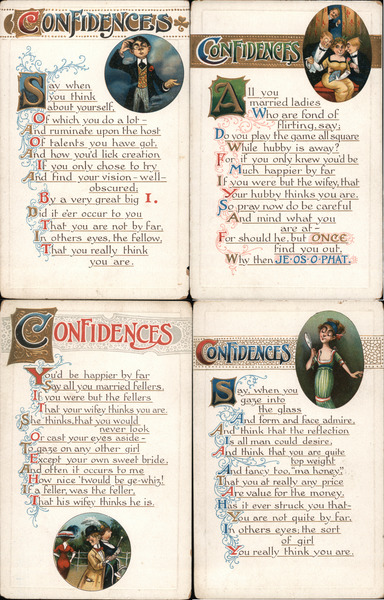 CONFIDENCES
Say when
you think
about yourself,
Of which you do a lot-
And ruminate upon the host
Of talents you have got,
And how you'd lick creation
If you only chose to try
And find your vision-well-
obscured;
By a very great big I.
Did it e'er occur to you
That you are not by far,
In others eyes, the fellow,
That you really think
you are.
CONFIDENCES
All you
married ladies
Who are fond of
flirting, say;
Do you play the game all square
While hubby is away?
For if you only knew you'd be
Much happier by far
If you were but the wifey, that
Your hubby thinks you are.
So pray now do be careful
And mind what you
are at-
For should he, but ONCE
find you out,
Why then JE-OS-O-PHAT.
CONFIDENCES
You'd be happier by far
Say all you married fellers,
If you were but the fellers
That your wifey thinks you are.
She thinks, that you would
never look
Or cast your eyes aside-
To gaze on any other girl
Except your own sweet bride.
And often it occurs to me
How nice 'twould be ge-whiz!
If a feller, was the feller,
That his wifey thinks he is.
CONFIDENCES
Say, when you
gaze into
the glass
And form and face admire,
And think that the reflection
Is all man could desire,
And think that you are quite
top weight
And fancy too, "ma honey",
That you at really any price
Are value for the money.
Has it ever struck you that-
You are not quite by far,
In others eyes; the sort
of girl
You really think you are.